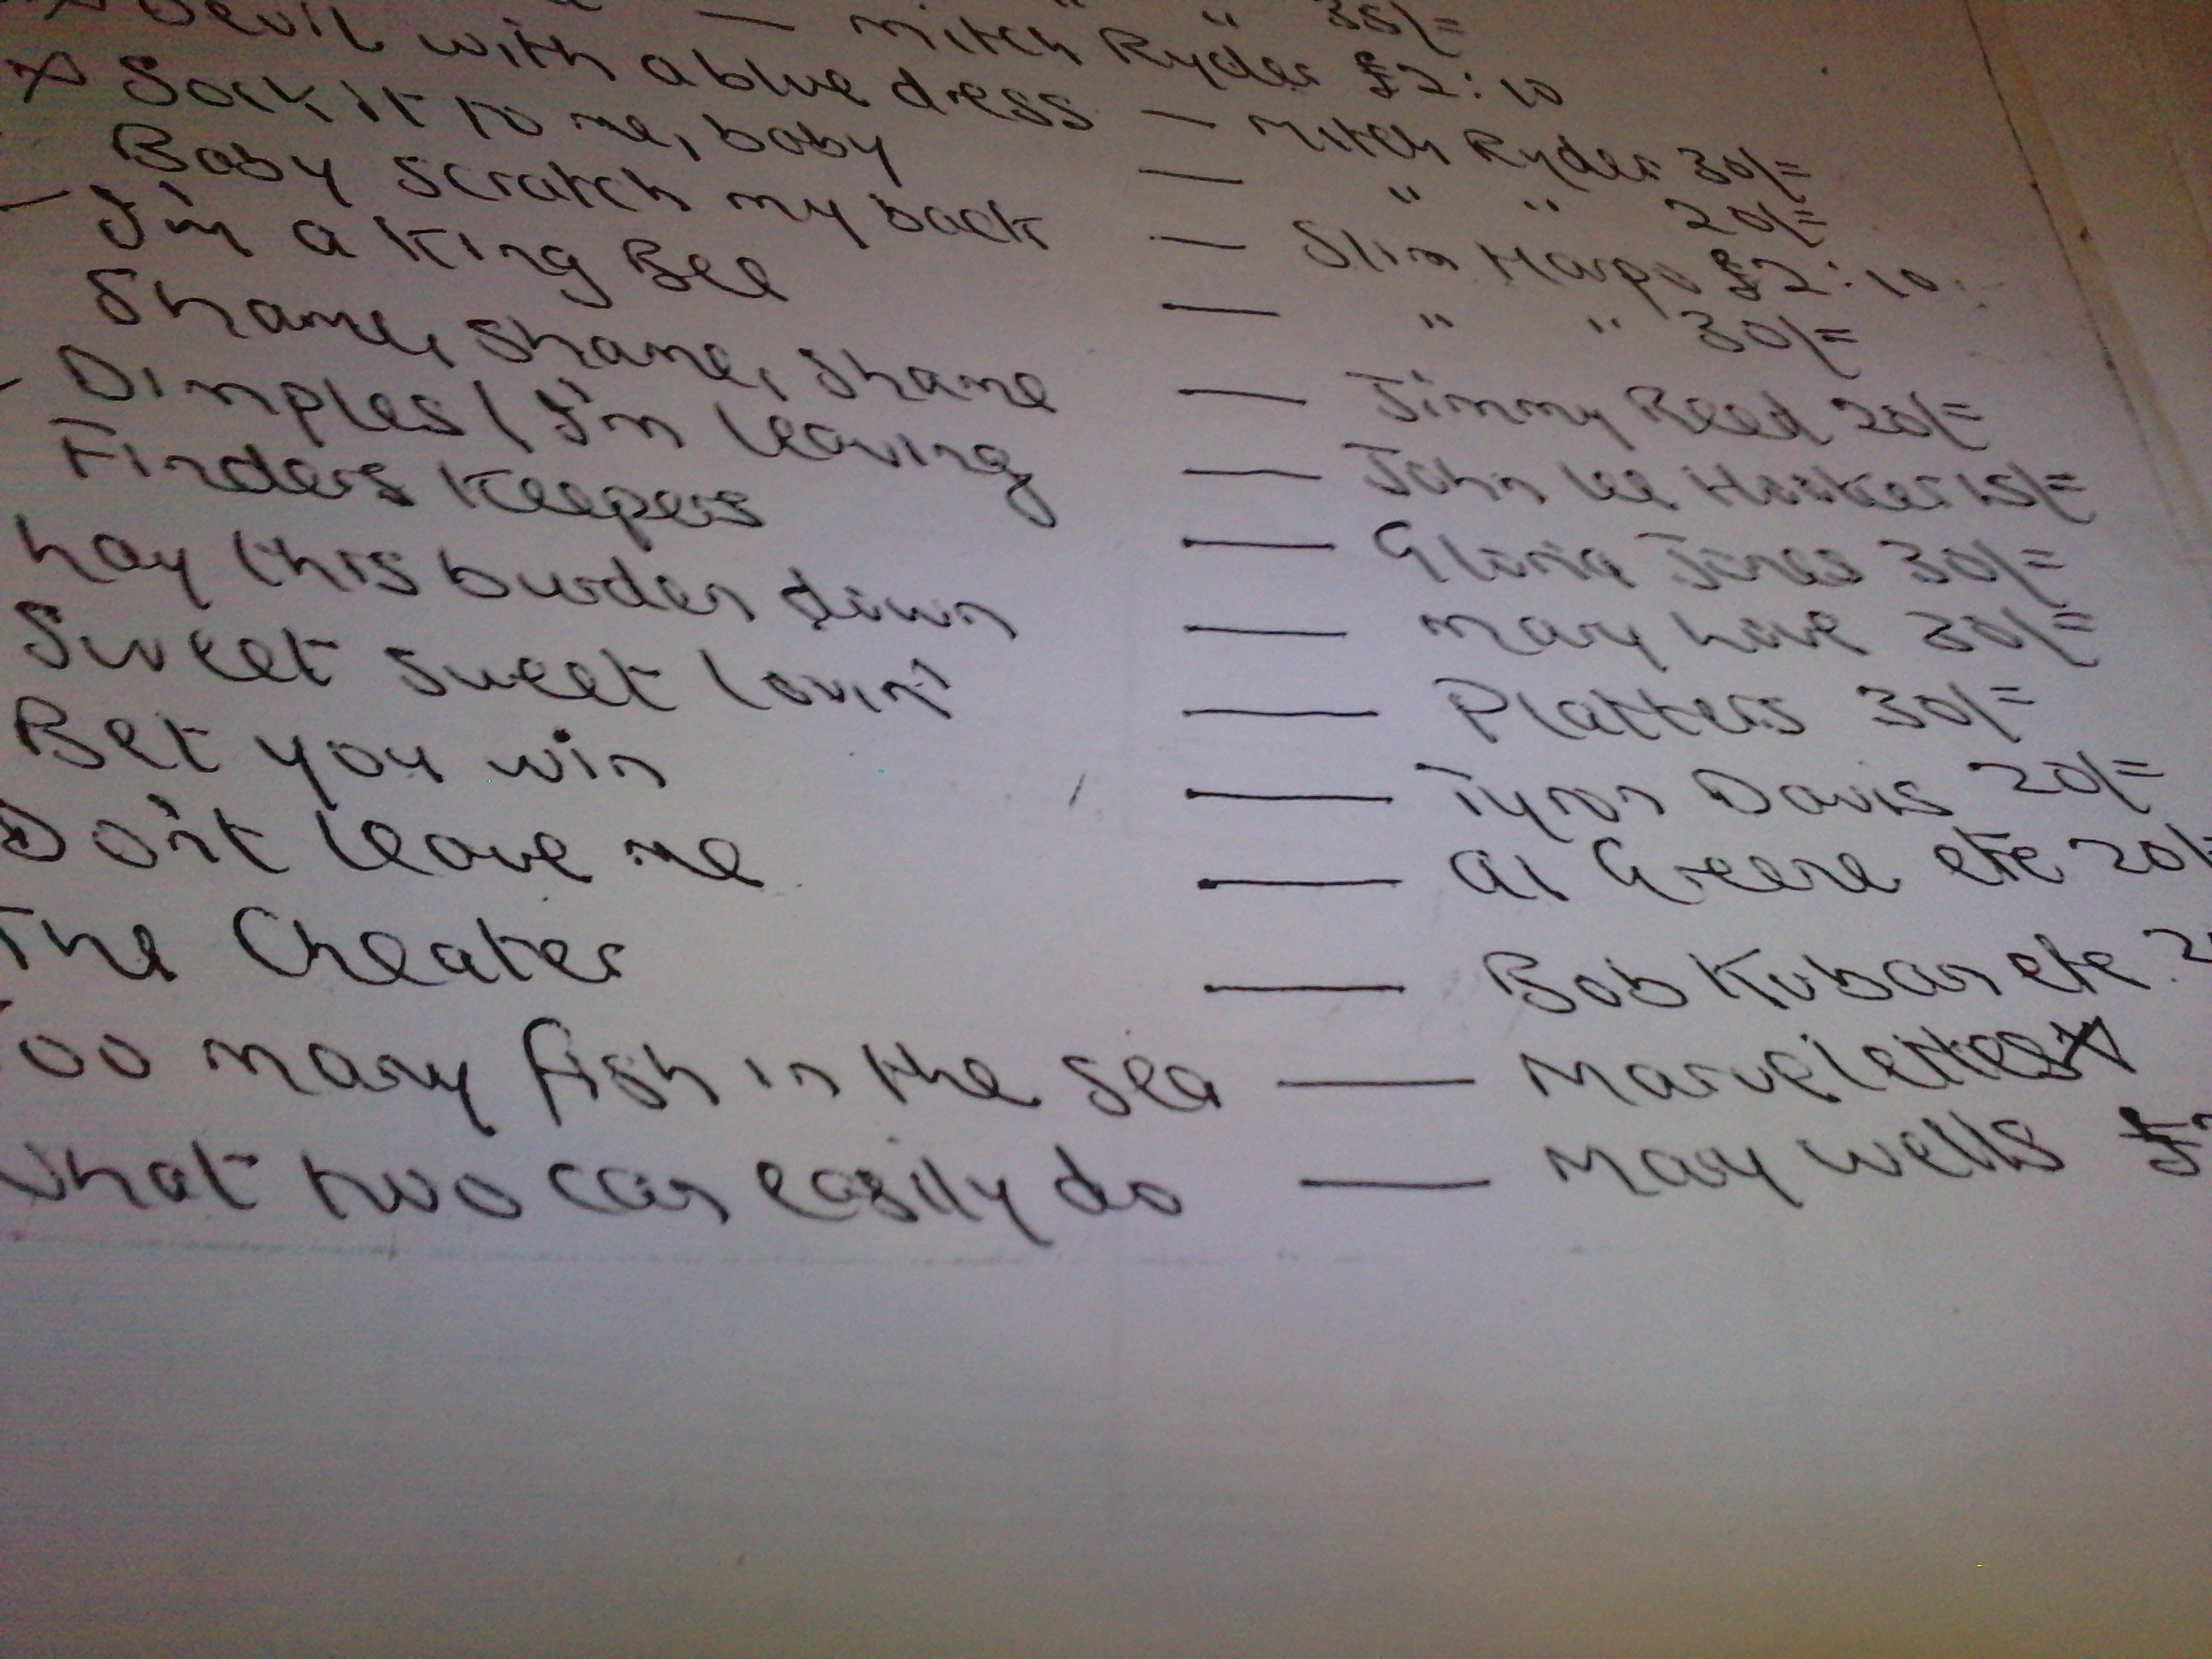 " " 35/=
— Mitch Ryder £2:10
Devil with a blue dress — Mitch Ryder 30/=
X Sock it to me, baby — " " 20/=
Baby scratch my back — Slim Harpo £2:10
- I'm a King Bee — " " 30/=
Shame, shame, shame — Jimmy Reed 20/=
- Dimples / I'm leaving — John Lee Hooker 15/=
Finders Keepers — Gloria Jones 30/=
Lay this burden down — Mary Love 30/=
Sweet sweet lovin' — Platters 30/=
Bet you win — Tyron Davis 20/=
Don't leave me — Al Greene etc 20/=
The Cheater — Bob Kuban etc 2
Too many fish in the sea — Marvelettes X
What two can easily do — Mary Wells £